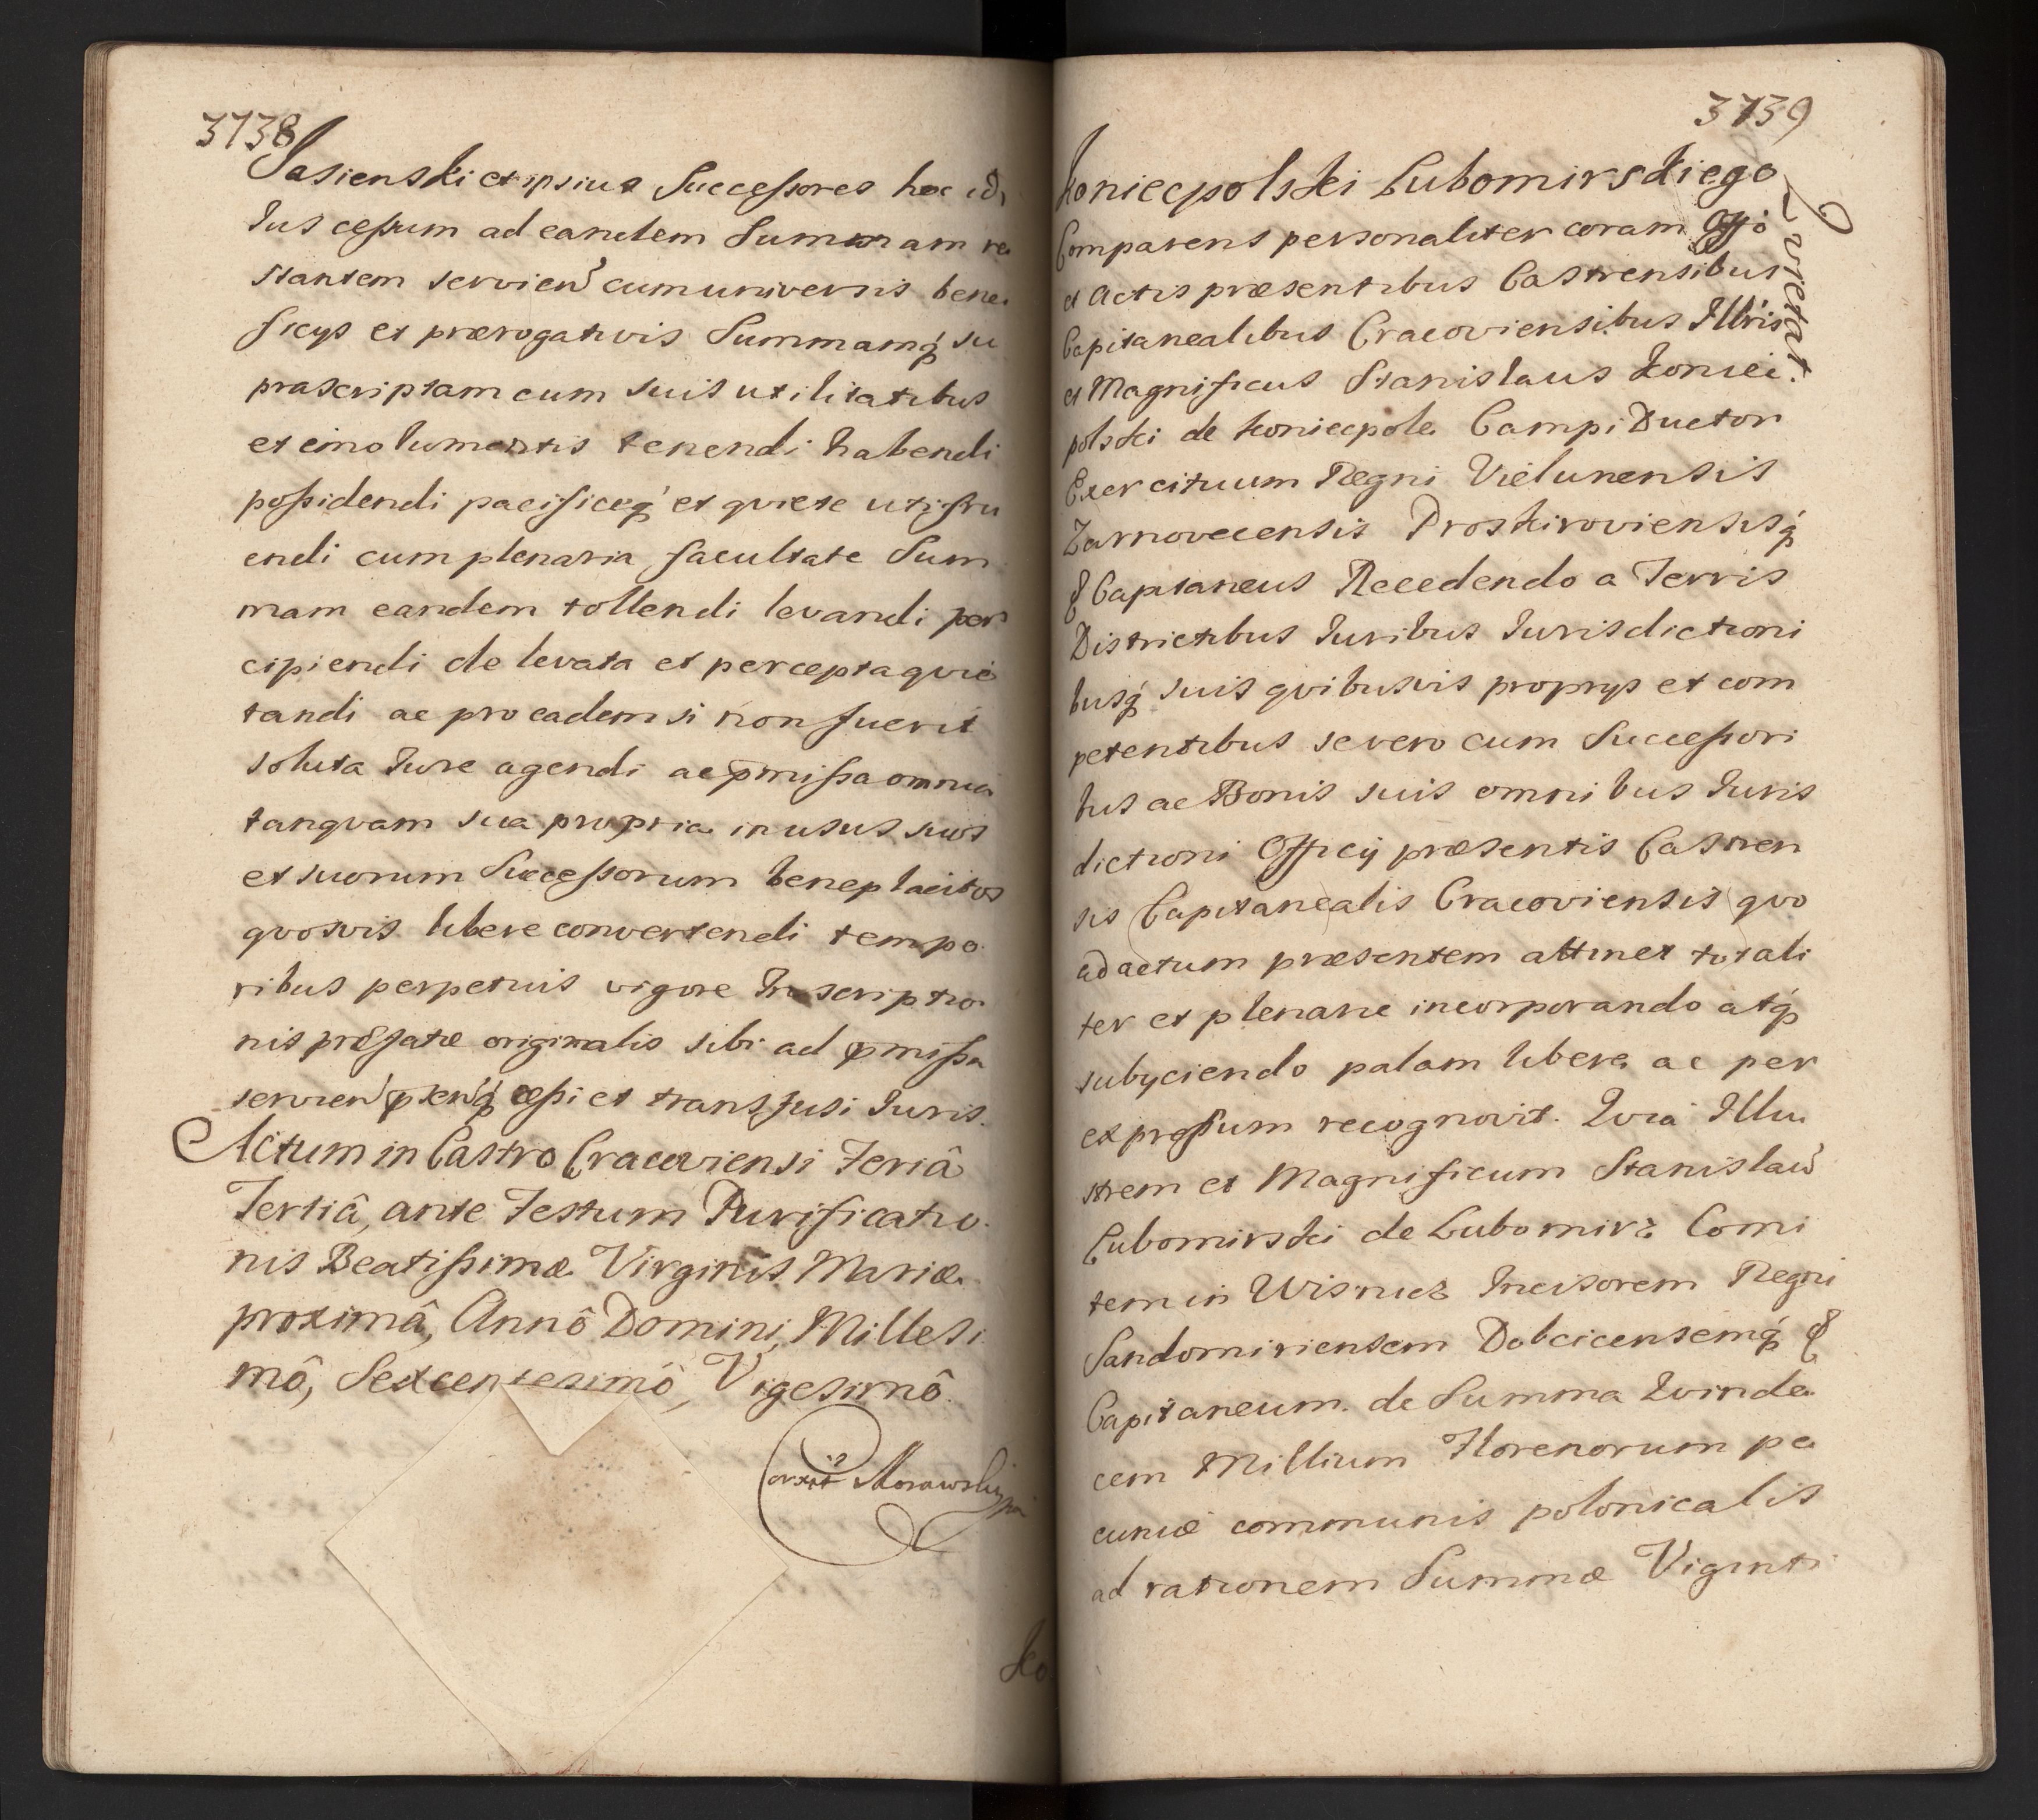 3738
Jasienski et ipsius Successores hoc id
Jus cessum ad eandem Summam re
stantem servien̄ cum universis bene
ficys et prærogativis Summamq́ su
prascriptam cum suis utilitatibus
et emolumentis tenendi habendi
possidendi pacificeq́ et qviete utifru
endi cum plenaria facultate Sum
mam eandem tollendi levandi per
cipiendi de levata et percepta qvie
tandi ac pro eadem si non fuerit
soluta Jure agendi ac p̄missa omnia
tanqvam sua propria in usus suos
et suorum Successorum beneplacitos
qvosvis libere convertendi tempo
ribus perpetuis vigore Inscriptio
nis præfatæ originalis sibi ad p̄missa
servien̄ p̄sen̄q́ cessi et transfusi Juris.
Actum in Castro Cracoviensi Feriâ
Tertiâ, ante Festum Purificatio
nis Beatissimæ Virginis Mariæ
proximâ, Annô Domini, Millesi
mô, Sexcentesimô, Vigesimô.
Morawski
Ko
3739
Koniecpolski Lubomirskiego
Qvietat.
Comparens personaliter coram Offô
et Actis præsentibus Castrensibus
Capitanealibus Cracoviensibus Illris
et Magnificus Stanislaus Koniec.
polski de Koniecpole Campi Ductor
Exercituum Regni Vielunensis
Zarnovecensis Proskiroviensisq́
& Capitaneus Recedendo a Terris
Districtibus Juribus Jurisdictioni
busq́ suis qvibusvis proprys et com
petentibus se vero cum Successori
bus ac Bonis suis omnibus Juris
dictioni Officÿ præsentis Castren
sis Capitanealis Cracoviensis qvo
ad actum præsentem attinet totali
ter et plenarie incorporando atq́
subyciendo palam libere ac per
expressum recognovit. Qvia Illu
strem et Magnificum Stanislaū
Lubomirski de Lubomirz Comi
tem in Wisnicz Incisorem Regni
Sandomiriensem Dobcicensemq́ &
Capitaneum. de Summa Qvinde
cem Millium Florenorum pe
cuniæ communis polonicalis
ad rationem Summæ Viginti